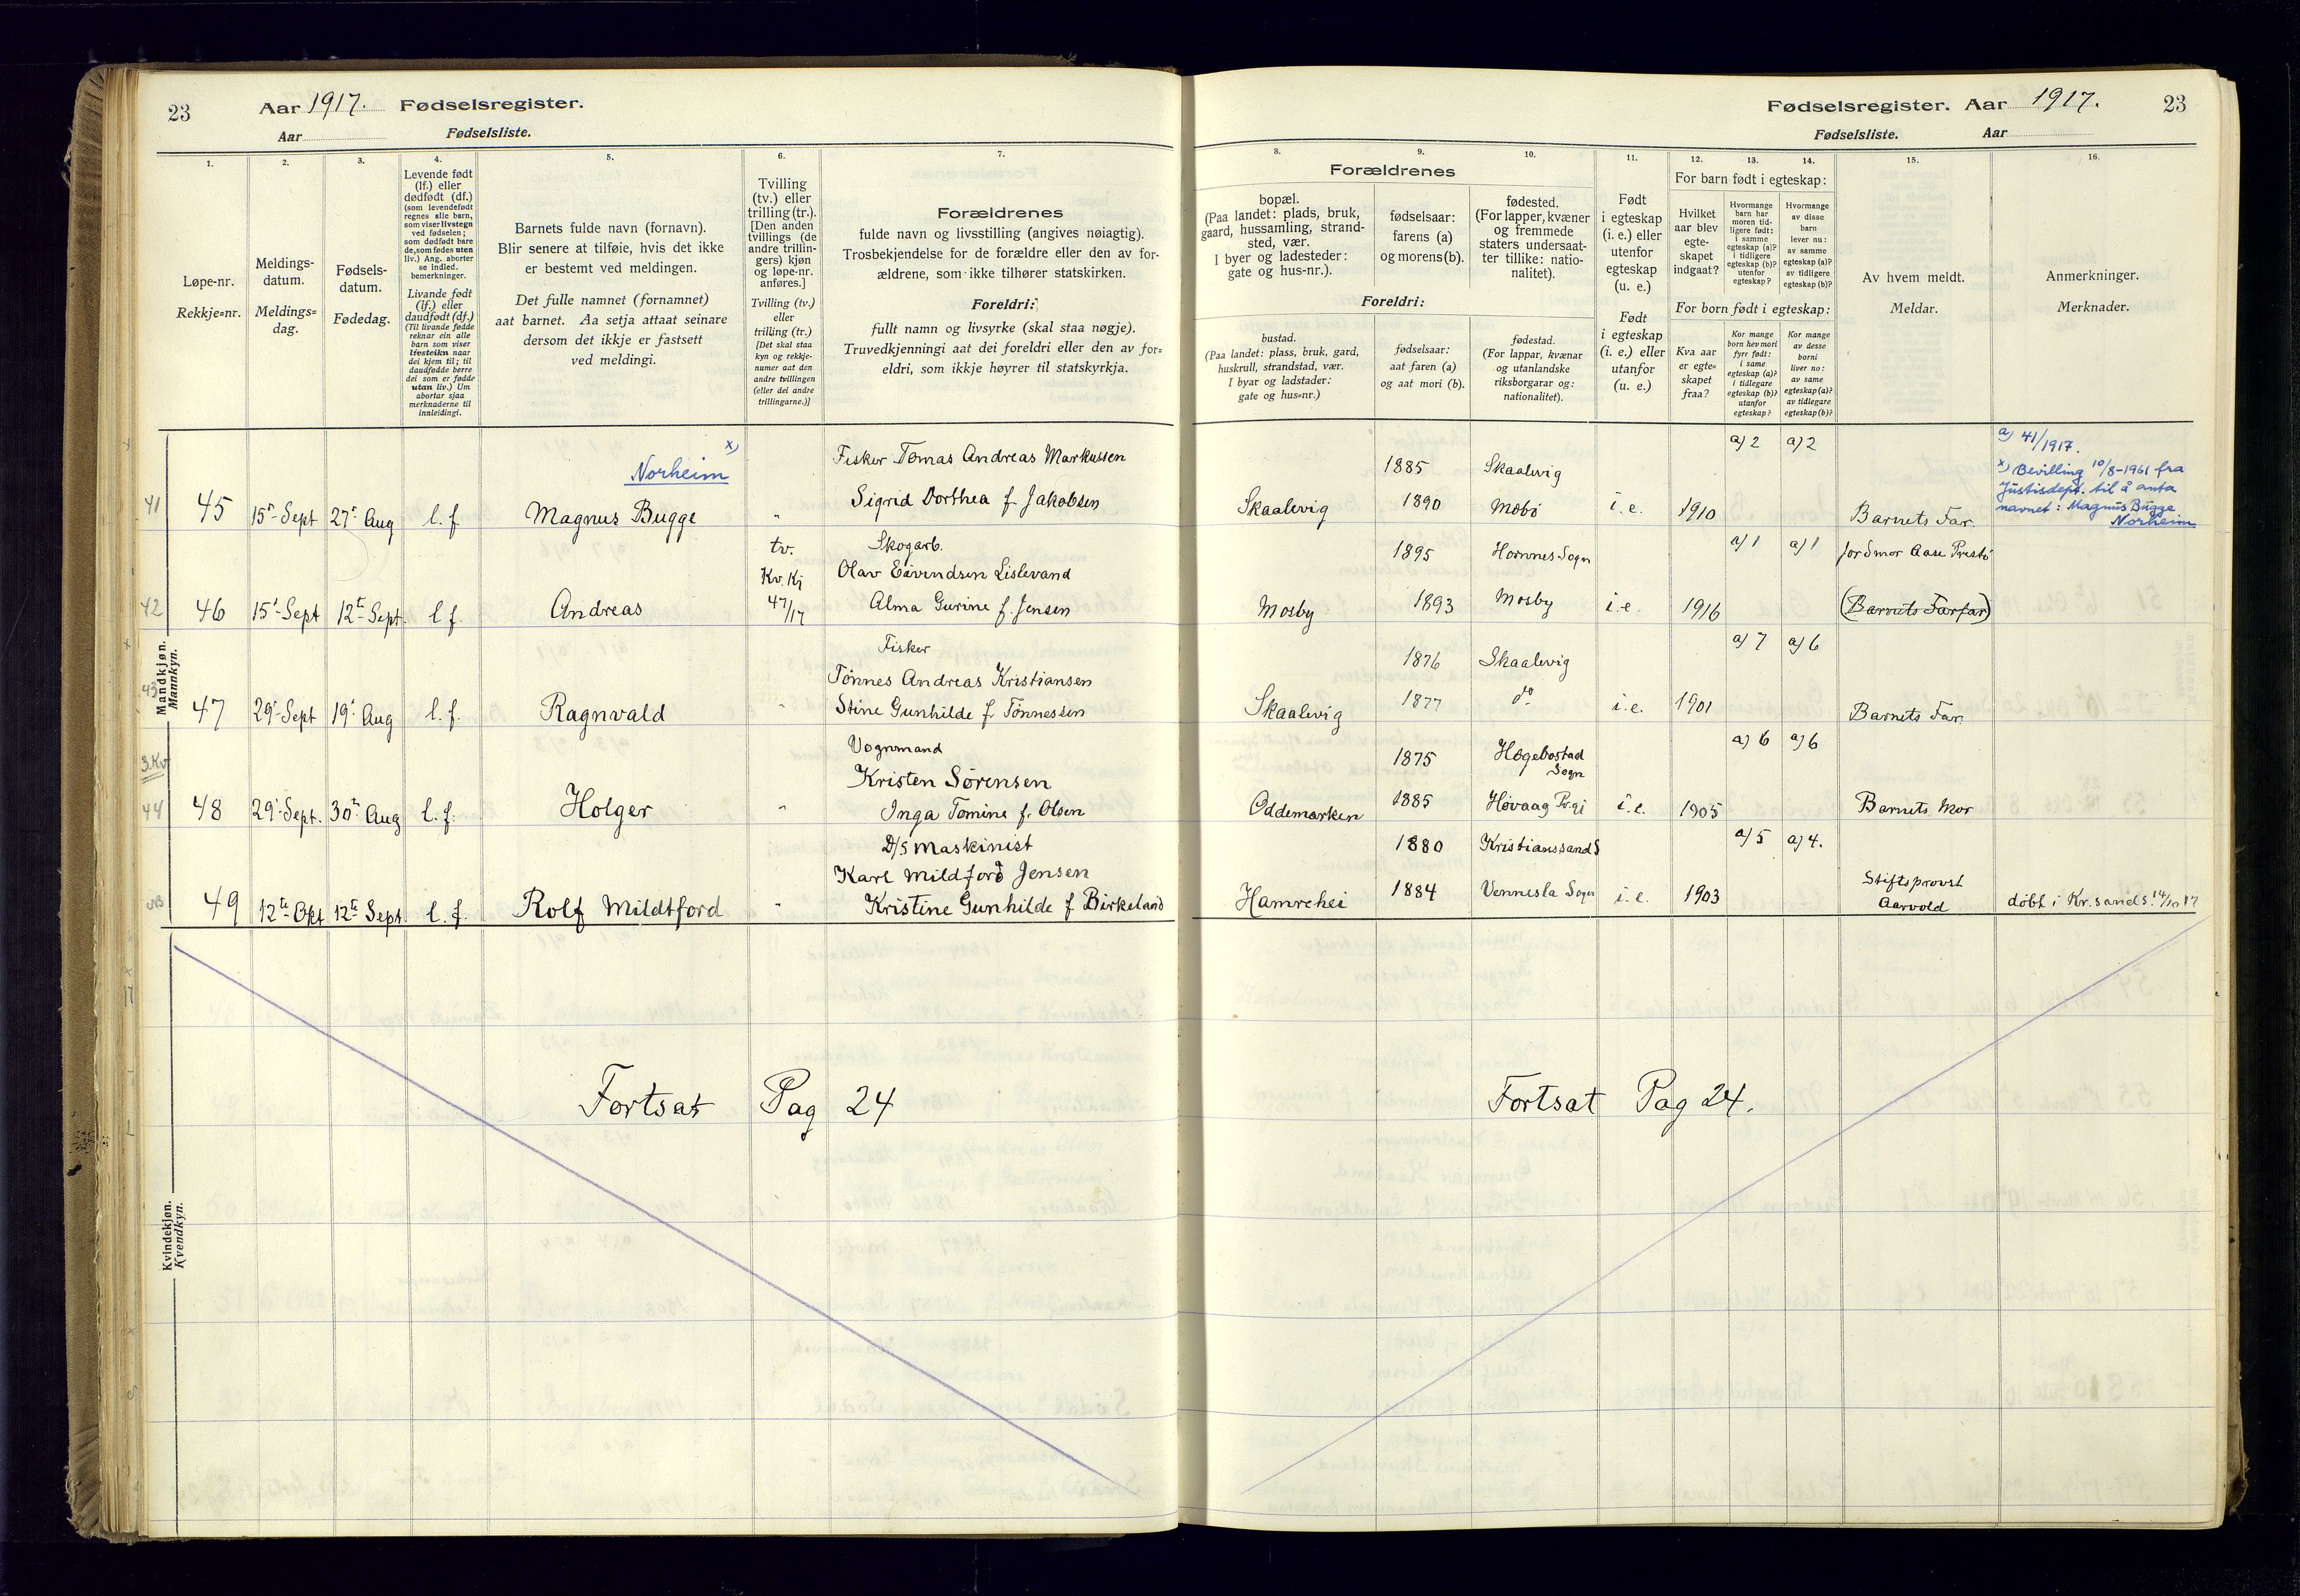 23 Aar 1917. Fødselsregister.
Aar Fødselsliste.
1. 2. 3. 4. 5. 6. 7.
Løpe-nr.
Rekkje=nr.
Meldings-
datum.
Meldings=
dag.
Fødsels-
datum.
Fødedag.
Levende født
(lf.) eller
dødfødt (df.)
(som levendefødt
regnes alle barn,
som viser livstegn
ved fødselen;
som dødfødt bare
de, som fødes uten
liv.) Ang. aborter
se indled.
bemerkninger.
Livande født
(lf.) eller
daudfødt (df.)
(Til livande fødde
reknar ein alle
barn som viser
livsteikn naar
dei kjem til; til
daudfødde berre
dei som er fødde
utan liv.) Um
abortar sjaa
merknaderne til
innleidingi.
Barnets fulde navn (fornavn).
Blir senere at tilføie, hvis det ikke
er bestemt ved meldingen.
Det fulle namnet (fornamnet)
aat barnet. Aa setja attaat seinare
dersom det ikkje er fastsett
ved meldingi.
Tvilling
(tv.) eller
trilling (tr.).
[Den anden
tvillings (de
andre trillin-
gers) kjøn
og løpe-nr.
anføres.]
Tvilling (tv.)
eller
trilling (tr.)
[Det skal staa
kyn og rekkje-
numer aat den
andre tvillingen
(eller dei andre
trillingarne.)]
Forældrenes
fulde navn og livsstilling (angives nøiagtig).
Trosbekjendelse for de forældre eller den av for-
ældrene, som ikke tilhører statskirken.
Foreldri:
fullt namn og livsyrke (skal staa nøgje).
Truvedkjenningi aat dei foreldri eller den av for=
eldri, som ikkje høyrer til statskyrkja.
Mandkjøn.
Mannkyn.
x)
Norheim
Fisker Tomas Andreas Markussen
41 45 15. Sept 27. Aug l. f Magnus Bugge " Sigrid Dorthea f Jakobsen
tv. Skogarb.
Kv. Kj Olav Eivindsen Lislevand
42 46 15. Sept 12te Sept. l f. Andreas 47/17 Alma Gurine f. Jensen
Fisker
Tønnes Andreas Kristiansen
43 47 29. Sept 19. Aug l. f. Ragnvald " Stine Gunhilde f Tønnessen
3 Kv Vognmand
Kristen Sørensen
44 48 29. Sept. 30te Aug l. f. Holger " Inga Tomine f. Olsen
D/S Maskinist
Karl Mildford Jensen
49 12te Okt 12te Sept. l. f. Rolf Mildtford " Kristine Gunhilde f Birkeland
Fortsat Pag 24
Kvindekjøn.
Kvendkyn.
Fødselsregister. Aar 1917. 23
Fødselsliste. Aar
8. 9. 10. 11. 12. 13. 14. 15. 16.
Forældrenes
bopæl.
(Paa landet: plads, bruk,
gaard, hussamling, strand-
sted, vær.
I byer og ladesteder:
gate og hus-nr.).
fødselsaar:
farens (a)
og morens (b).
fødested.
(For lapper, kvæner
og fremmede
staters undersaat-
ter tillike: natio-
nalitet).
Foreldri:
bustad.
(Paa landet: plass, bruk, gard,
huskrull, strandstad, vær.
I byar og ladstader:
gate og hus=nr.)
fødselsaar:
aat faren (a)
og aat mori (b).
fødestad.
(For lappar, kvænar
og utanlandske
riksborgarar og:
nationalitet).
Født
i egteskap
(i. e.) eller
utenfor
egteskap
(u. e.)
Født
i egteskap
(i. e.) eller
utanfor
(u. e.)
For barn født i egteskap:
Hvilket
aar blev
egte-
skapet
indgaat?
Hvormange
barn har
moren tid-
ligere født:
i samme
egteskap (a)?
i tidligere
egteskap (b)?
utenfor
egteskap?
Hvormange
av disse
barn
lever nu:
av samme
egteskap (a)?
av tidligere
egteskap (b)?
For born født i egteskap:
Kva aar
er egte=
skapet
fraa?
Kor mange
born hev mori
fyrr født:
i same
egteskap (a)?
i tidlegare
egteskap (b)?
utanfor
egteskap?
Kor mange
av desse
borni
liver no:
av same
egteskap (a)?
av tidlegare
egteskap (b)?
Av hvem meldt.
Meldar.
Anmerkninger.
Merknader.
a) 2 a) 2 a) 41/1917.
1885 Skaalevig x) Bevilling 10/8-1961 fra
Justisdept. til å anta
Skaalevig 1890 Mebø i. e. 1910 Barnets Far. navnet: Magnus Bugge
Norheim
1895 Hornnes Sogn a) 1 a) 1 Jordmor Aase Prestø
Mosby 1893 Mosby i. e. 1916 (Barnets Farfar)
a) 7 a) 6
1876 Skaalevig
Skaalevig 1877 do i. e. 1901 Barnets Far.
a) 6 a) 6
1875 Hægebostad
Sogn
Oddemarken 1885 Høvaag Prgj i. e. 1905 Barnets Mor
1880 Kristianssand S a) 5 a) 4.
Stiftsprovst
Hamrehei 1884 Vennesla Sogn i. e. 1903 Aarvold døbt i Kr.sand S. 14/10 17
Fortsat Pag 24.